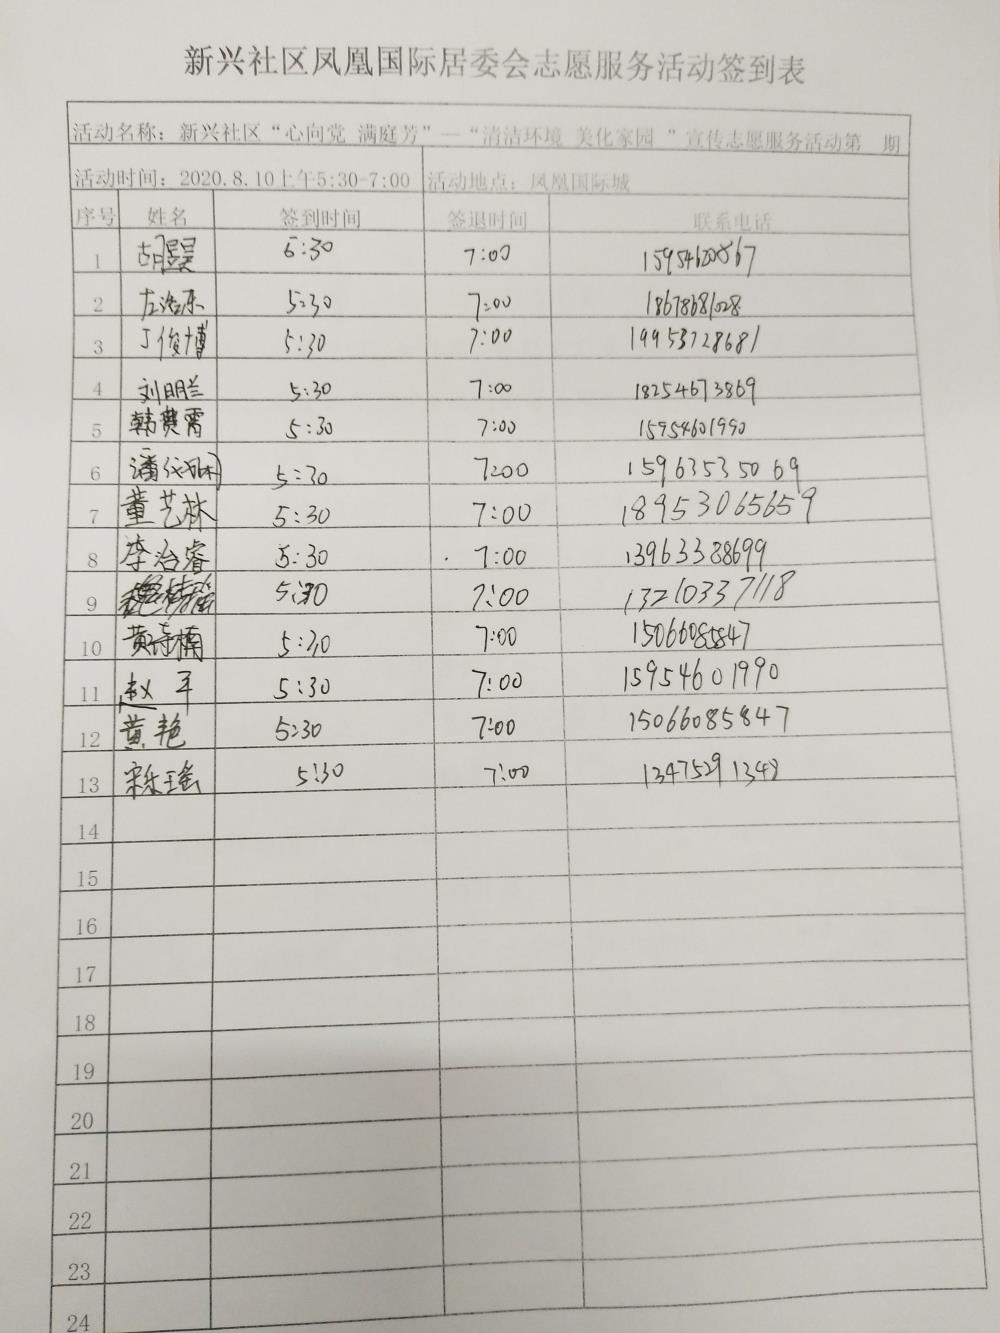 新兴社区凤凰国际居委会志愿服务活动签到表
活动名称：新兴社区“心向党 满庭芳”—“清洁环境 美化家园 ”宣传志愿服务活动第 期
活动时间：2020.8.10上午5:30-7:00 活动地点：凤凰国际城
序号 姓名 签到时间 签退时间 联系电话
1 5:30 7:00
2 5:30 7:00 18678681028
3 丁俊博 5:30 7:00 19953728681
4 刘明兰 5:30 7:00 18254673869
5 韩霄 5:30 7:00 15954601990
6 潘 5:30 7:00 15963535069
7 董艺林 5:30 7:00 18953065659
8 李治睿 5:30 7:00 13963388699
9 5:30 7:00 13210337118
10 黄诗楠 5:30 7:00 15066085847
11 赵军 5:30 7:00 15954601990
12 黄艳 5:30 7:00 15066085847
13 宋乐瑶 5:30 7:00 13475291348
14
15
16
17
18
19
20
21
22
23
24